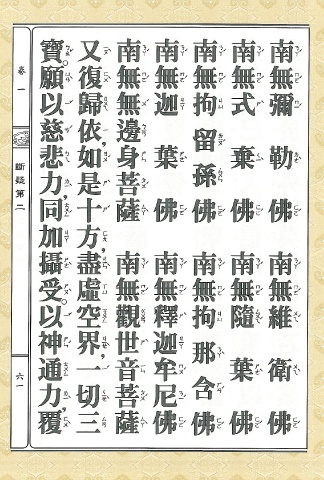 南無彌勒佛 南無維衛佛
南無式棄佛 南無隨葉佛
南無拘留孫佛 南無拘那含佛
南無迦葉佛 南無釋迦牟尼佛
南無無邊身菩薩 南無觀世音菩薩
又復歸依,如是十方,盡虛空界,一切三
寶。願以慈悲力,同加攝受。以神通力,覆
卷一
斷疑第二
六一